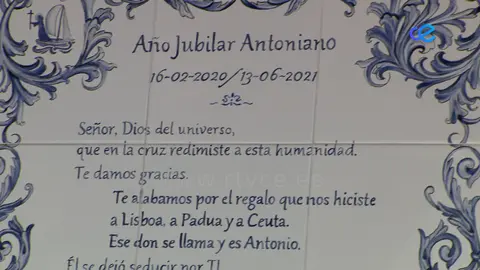 Año Jubilar Antoniano
16-02-2020/13-06-2021
Señor, Dios del universo,
que en la cruz redimiste a esta humanidad.
Te damos gracias.
Te alabamos por el regalo que nos hiciste
a Lisboa, a Padua y a Ceuta.
Ese don se llama y es Antonio.
Él se dejó seducir por TI